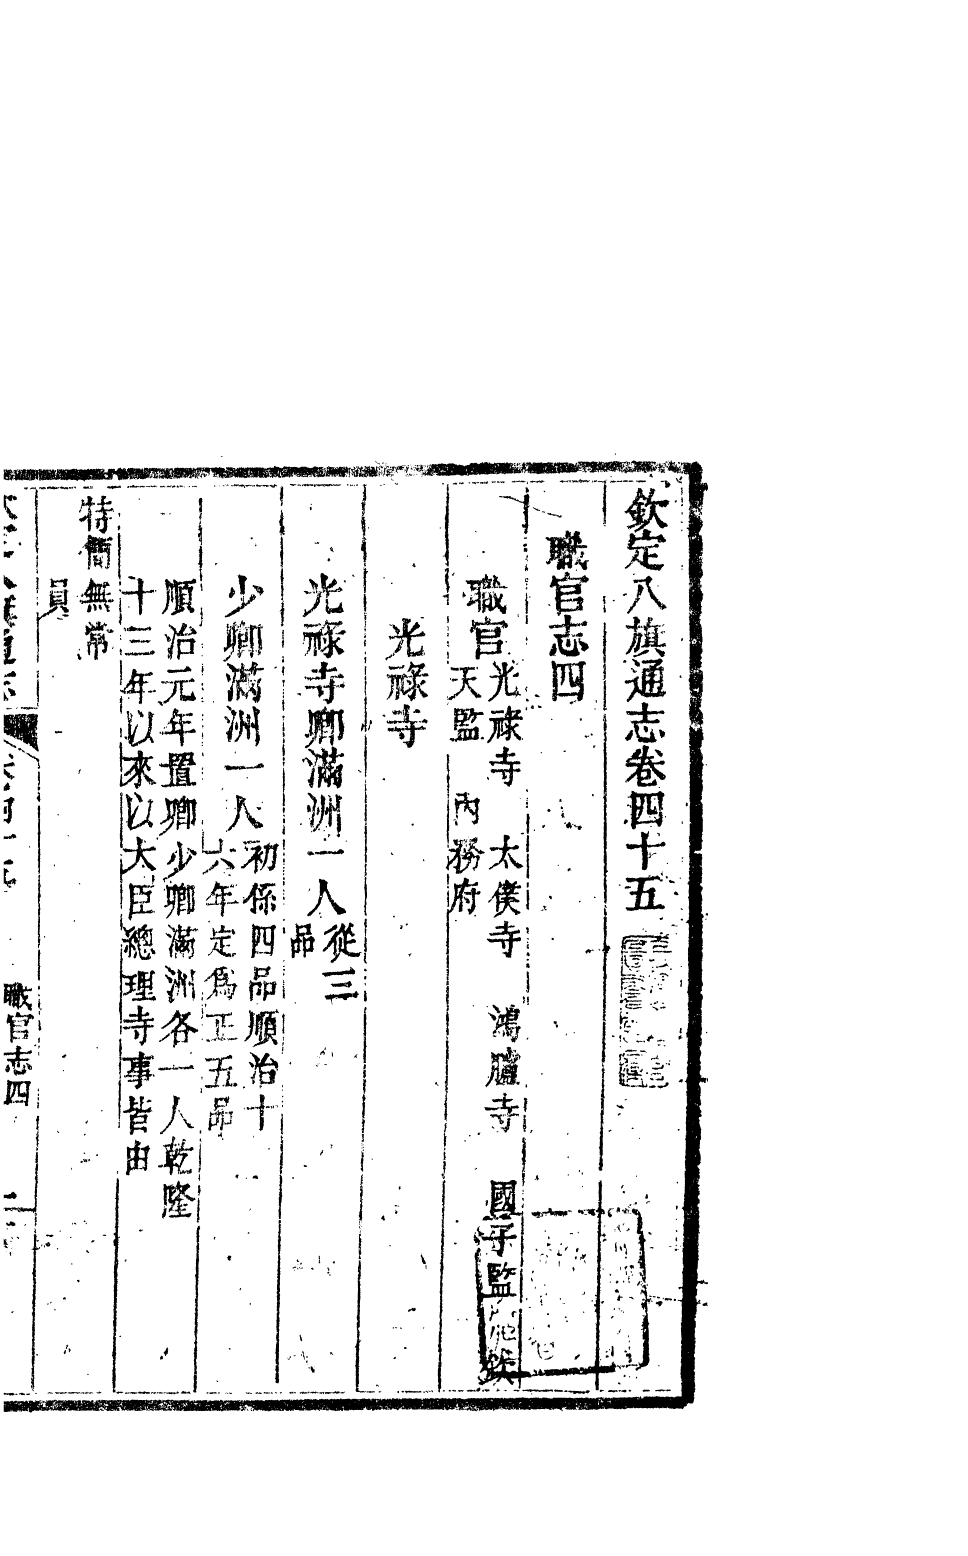 欽定八旗通志卷四十五
職官志四
職官光祿寺　太僕寺　鴻臚寺　國子監　欽
天監　內務府
光祿寺
光祿寺卿滿洲一人從三
品
少卿滿洲一人初係四品順治十
六年定爲正五品
順治元年置卿少卿滿洲各一人乾隆
十三年以來以大臣總理寺事皆由
特簡無常
員
職官志四